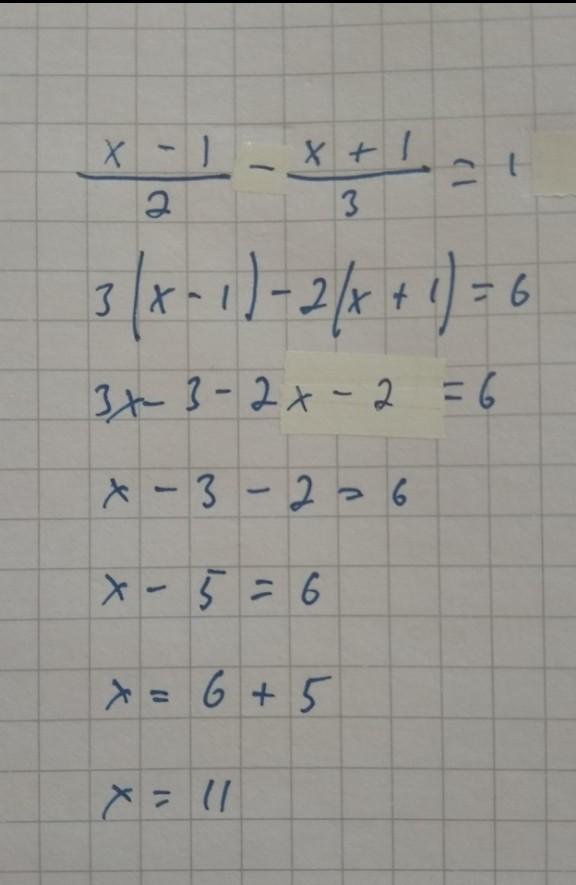 (x - 1)/2 - (x + 1)/3 = 1
3(x - 1) - 2(x + 1) = 6
3x - 3 - 2x - 2 = 6
x - 3 - 2 = 6
x - 5 = 6
x = 6 + 5
x = 11